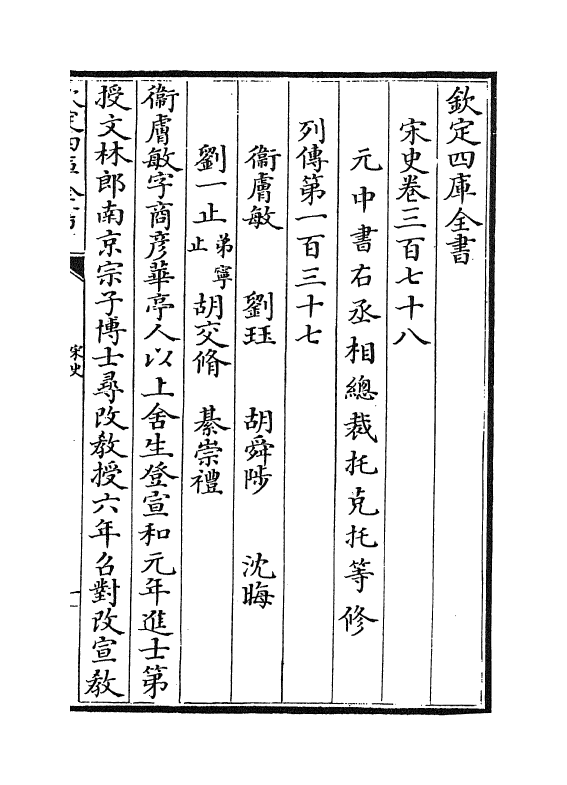 欽定四庫全書
宋史卷三百七十八
元中書右丞相總裁托克托等修
列傳第一百三十七
衞膚敏 劉珏 胡舜陟 沈晦
劉一止弟寧止 胡交脩 綦崇禮
衞膚敏字商彦華亭人以上舍生登宣和元年進士第
授文林郎南京宗子博士尋改教授六年召對改宣教
欽定四庫全書 宋史 一